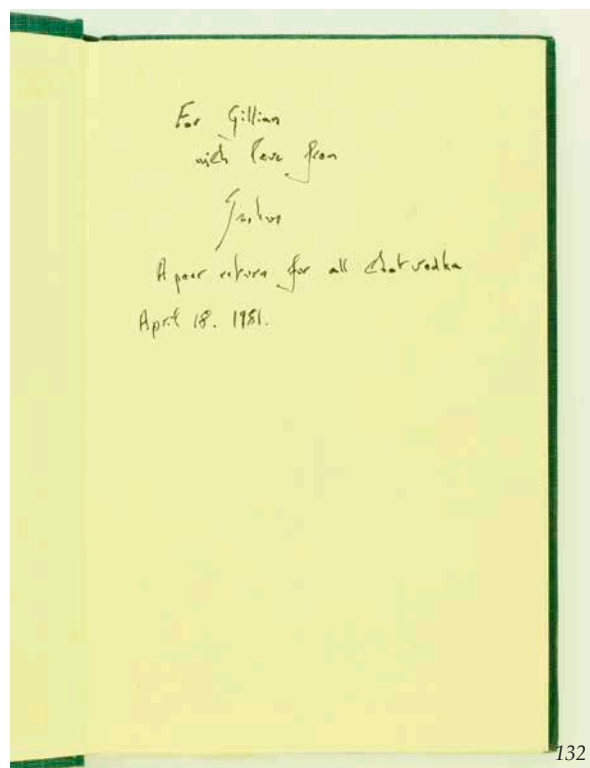 For Gillian
with love from
Graham
A poor return for all that vodka
April 18. 1981.
132